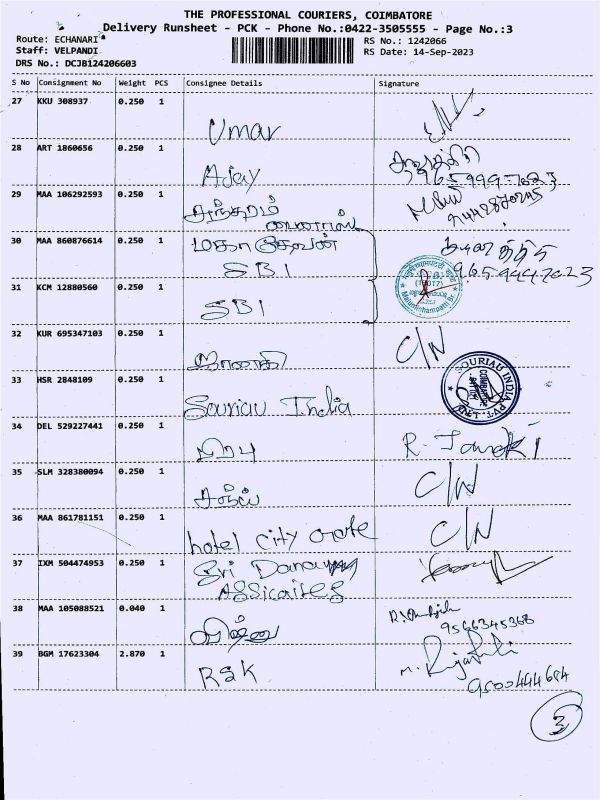 THE PROFESSIONAL COURIERS, COIMBATORE
Delivery Runsheet - PCK - Phone No.:0422-3505555 - Page No.:3
Route: ECHANARI
Staff: VELPANDI
DRS No.: DCJB124206603
RS No.: 1242066
RS Date: 14-Sep-2023
S No Consignment No Weight PCS Consignee Details Signature
27 KKU 308937 0.250 1 Umar
28 ART 1860656 0.250 1 Ajay
29 MAA 106292593 0.250 1
30 MAA 860876614 0.250 1 மகாதேவன்
SBI
31 KCM 12880560 0.250 1 SBI
32 KUR 695347103 0.250 1 ஜானகி C/N
33 HSR 2848109 0.250 1 Souriau India
SOURIAU INDIA PVT. LTD.
COIMBATORE
34 DEL 529227441 0.250 1 பிரபு R. Janaki
35 SLM 328380094 0.250 1 C/N
36 MAA 861781151 0.250 1 hotel city gate C/N
37 IXM 504474953 0.250 1 Sri
38 MAA 105088521 0.040 1 விஷ்ணு
9566345368
39 BGM 17623304 2.870 1 RSK
3